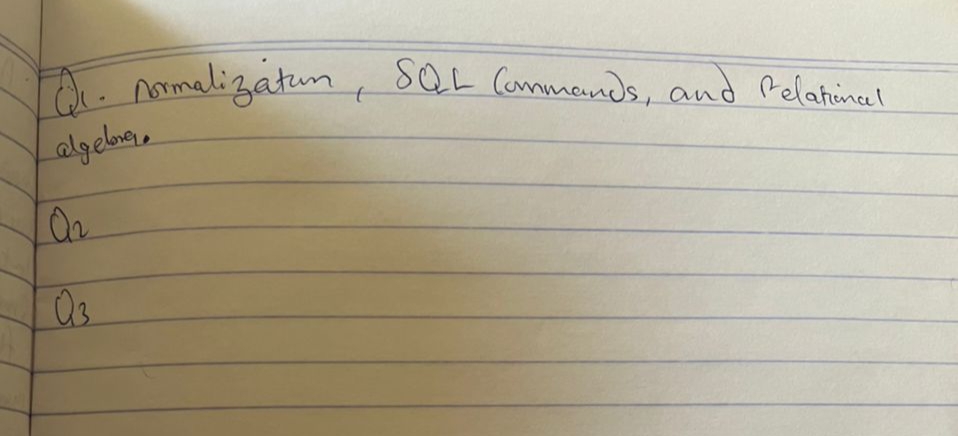 Q1. Normalization, SQL Commands, and Relational
algebra.
Q2
Q3